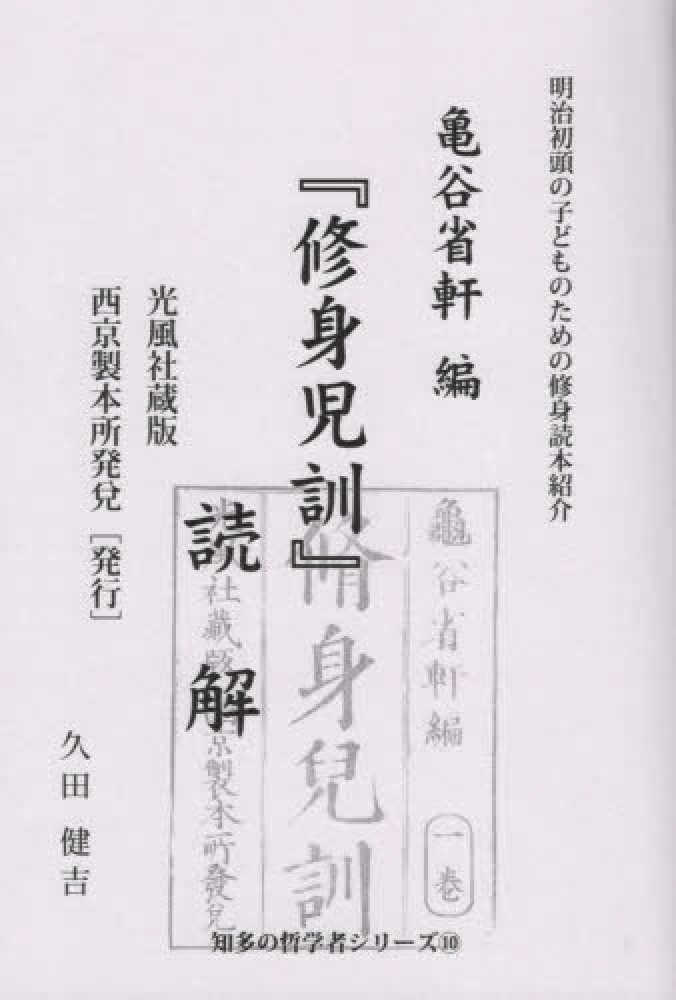 明治初頭の子どものための修身読本紹介
亀谷省軒 編
『修身児訓』
読解
光風社蔵版
西京製本所発兌［発行］
久田 健吉
龜谷省軒編
一卷
脩身兒訓
社藏版
製本所發兌
知多の哲学者シリーズ⑩